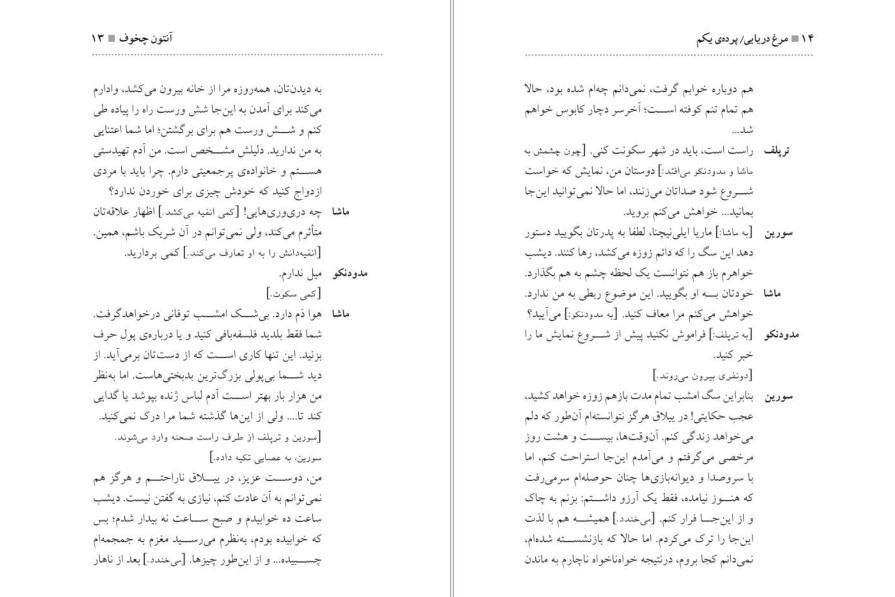 آنتون چخوف ■ ۱۳
به دیدن‌تان، همه‌روزه مرا از خانه بیرون می‌کشد، وادارم
می‌کند برای آمدن به این‌جا شش ورست راه را پیاده طی
کنم و شــش ورست هم برای برگشتن؛ اما شما اعتنایی
به من ندارید. دلیلش مشـخص است. من آدم تهیدستی
هســتم و خانواده‌ی پرجمعیتی دارم. چرا باید با مردی
ازدواج کنید که خودش چیزی برای خوردن ندارد؟
ماشا چه دری‌وری‌هایی! [کمی انفیه می‌کشد.] اظهار علاقه‌تان
متأثرم می‌کند، ولی نمی‌توانم در آن شریک باشم، همین.
[انفیه‌دانش را به او تعارف می‌کند.] کمی بردارید.
مدودنکو میل ندارم.
[کمی سکوت.]
ماشا هوا دَم دارد. بی‌شـک امشـب توفانی درخواهدگرفت.
شما فقط بلدید فلسفه‌بافی کنید و یا درباره‌ی پول حرف
بزنید. این تنها کاری اسـت که از دست‌تان برمی‌آید. از
دید شـما بی‌پولی بزرگ‌ترین بدبختی‌هاست. اما به‌نظر
من هزار بار بهتر اسـت آدم لباس ژنده بپوشد یا گدایی
کند تا.... ولی از این‌ها گذشته شما مرا درک نمی‌کنید.
[سورین و ترپلف از طرف راست صحنه وارد می‌شوند.
سورین، به عصایی تکیه داده.]
من، دوسـت عزیز، در ییـلاق ناراحتـم و هرگز هم
نمی‌توانم به آن عادت کنم، نیازی به گفتن نیست. دیشب
ساعت ده خوابیدم و صبح ساعت نه بیدار شدم؛ بس
که خوابیده بودم، به‌نظرم می‌رسـید مغزم به جمجمه‌ام
چسـبیده... و از این‌طور چیزها. [می‌خندد.] بعد از ناهار
۱۴ ■ مرغ دریایی/ پرده‌ی یکم
هم دوباره خوابم گرفت، نمی‌دانم چه‌ام شده بود، حالا
هم تمام تنم کوفته اسـت؛ آخرسر دچار کابوس خواهم
شد...
ترپلف راست است، باید در شهر سکونت کنی. [چون چشمش به
ماشا و مدودنکو می‌افتد:] دوستان من، نمایش که خواست
شـروع شود صداتان می‌زنند، اما حالا نمی‌توانید این‌جا
بمانید... خواهش می‌کنم بروید.
سورین [به ماشا:] ماریا ایلی‌نیچنا، لطفا به پدرتان بگویید دستور
دهد این سگ را که دائم زوزه می‌کشد، رها کنند. دیشب
خواهرم باز هم نتوانست یک لحظه چشم به هم بگذارد.
ماشا خودتان بـه او بگویید. این موضوع ربطی به من ندارد.
خواهش می‌کنم مرا معاف کنید. [به مدودنکو:] می‌آیید؟
مدودنکو [به ترپلف:] فراموش نکنید پیش از شـروع نمایش ما را
خبر کنید.
[دونفری بیرون می‌روند.]
سورین بنابراین سگ امشب تمام مدت بازهم زوزه خواهد کشید،
عجب حکایتی! در ییلاق هرگز نتوانسته‌ام آن‌طور که دلم
می‌خواهد زندگی کنم. آن‌وقت‌ها، بیست و هشت روز
مرخصی می‌گرفتم و می‌آمدم این‌جا استراحت کنم، اما
با سروصدا و دیوانه‌بازی‌ها چنان حوصله‌ام سرمی‌رفت
که هنـوز نیامده، فقط یک آرزو داشـتم: بزنم به چاک
و از این‌جـا فرار کنم. [می‌خندد.] همیشـه هم با لذت
این‌جا را ترک می‌کردم. اما حالا که بازنشسـته شده‌ام،
نمی‌دانم کجا بروم، درنتیجه خواه‌ناخواه ناچارم به ماندن